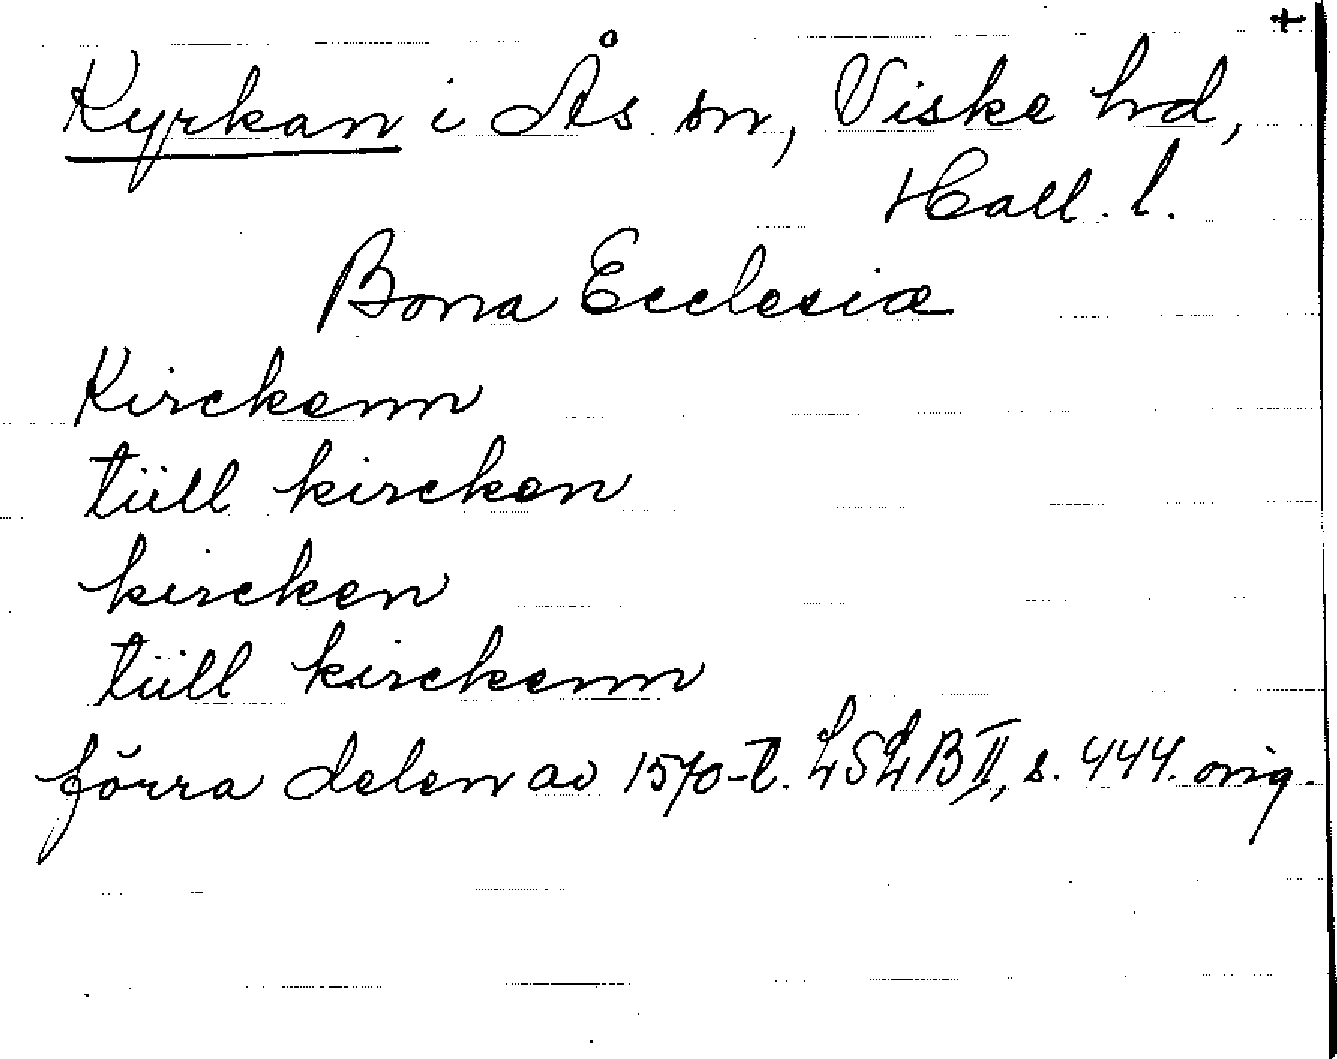 Kyrkan i Ås sn, Viske hd,
Hall. l.
Bona Ecclesiæ
Kirckenn
tüll kircken
kircken
tüll kirckenn
förra delen av 1570-t. LSLB II, s. 444. orig.